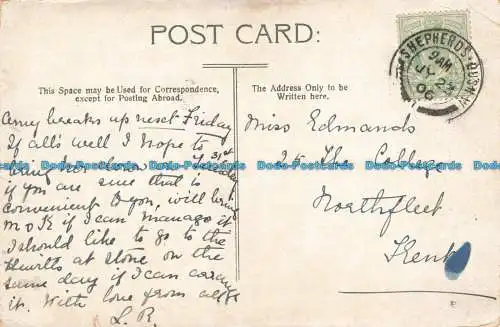 POST CARD:
This Space may be Used for Correspondence,
except for Posting Abroad.
The Address Only to be
Written here.
SHEPHERDS BUSH
9 AM
JY 23
06
Amy breaks up next Friday
If all's well I hope to
bring her down 31st
if you are sure that is
convenient to you, will bring
M & K if I can manage it
I should like to go to the
Hewitts at Stone on the
same day if I can
it. With love from all
L. R.
Miss Edmands
25 The College
Northfleet
Kent
Dodo-Postcards Dodo-Postcards Dodo-Postcards